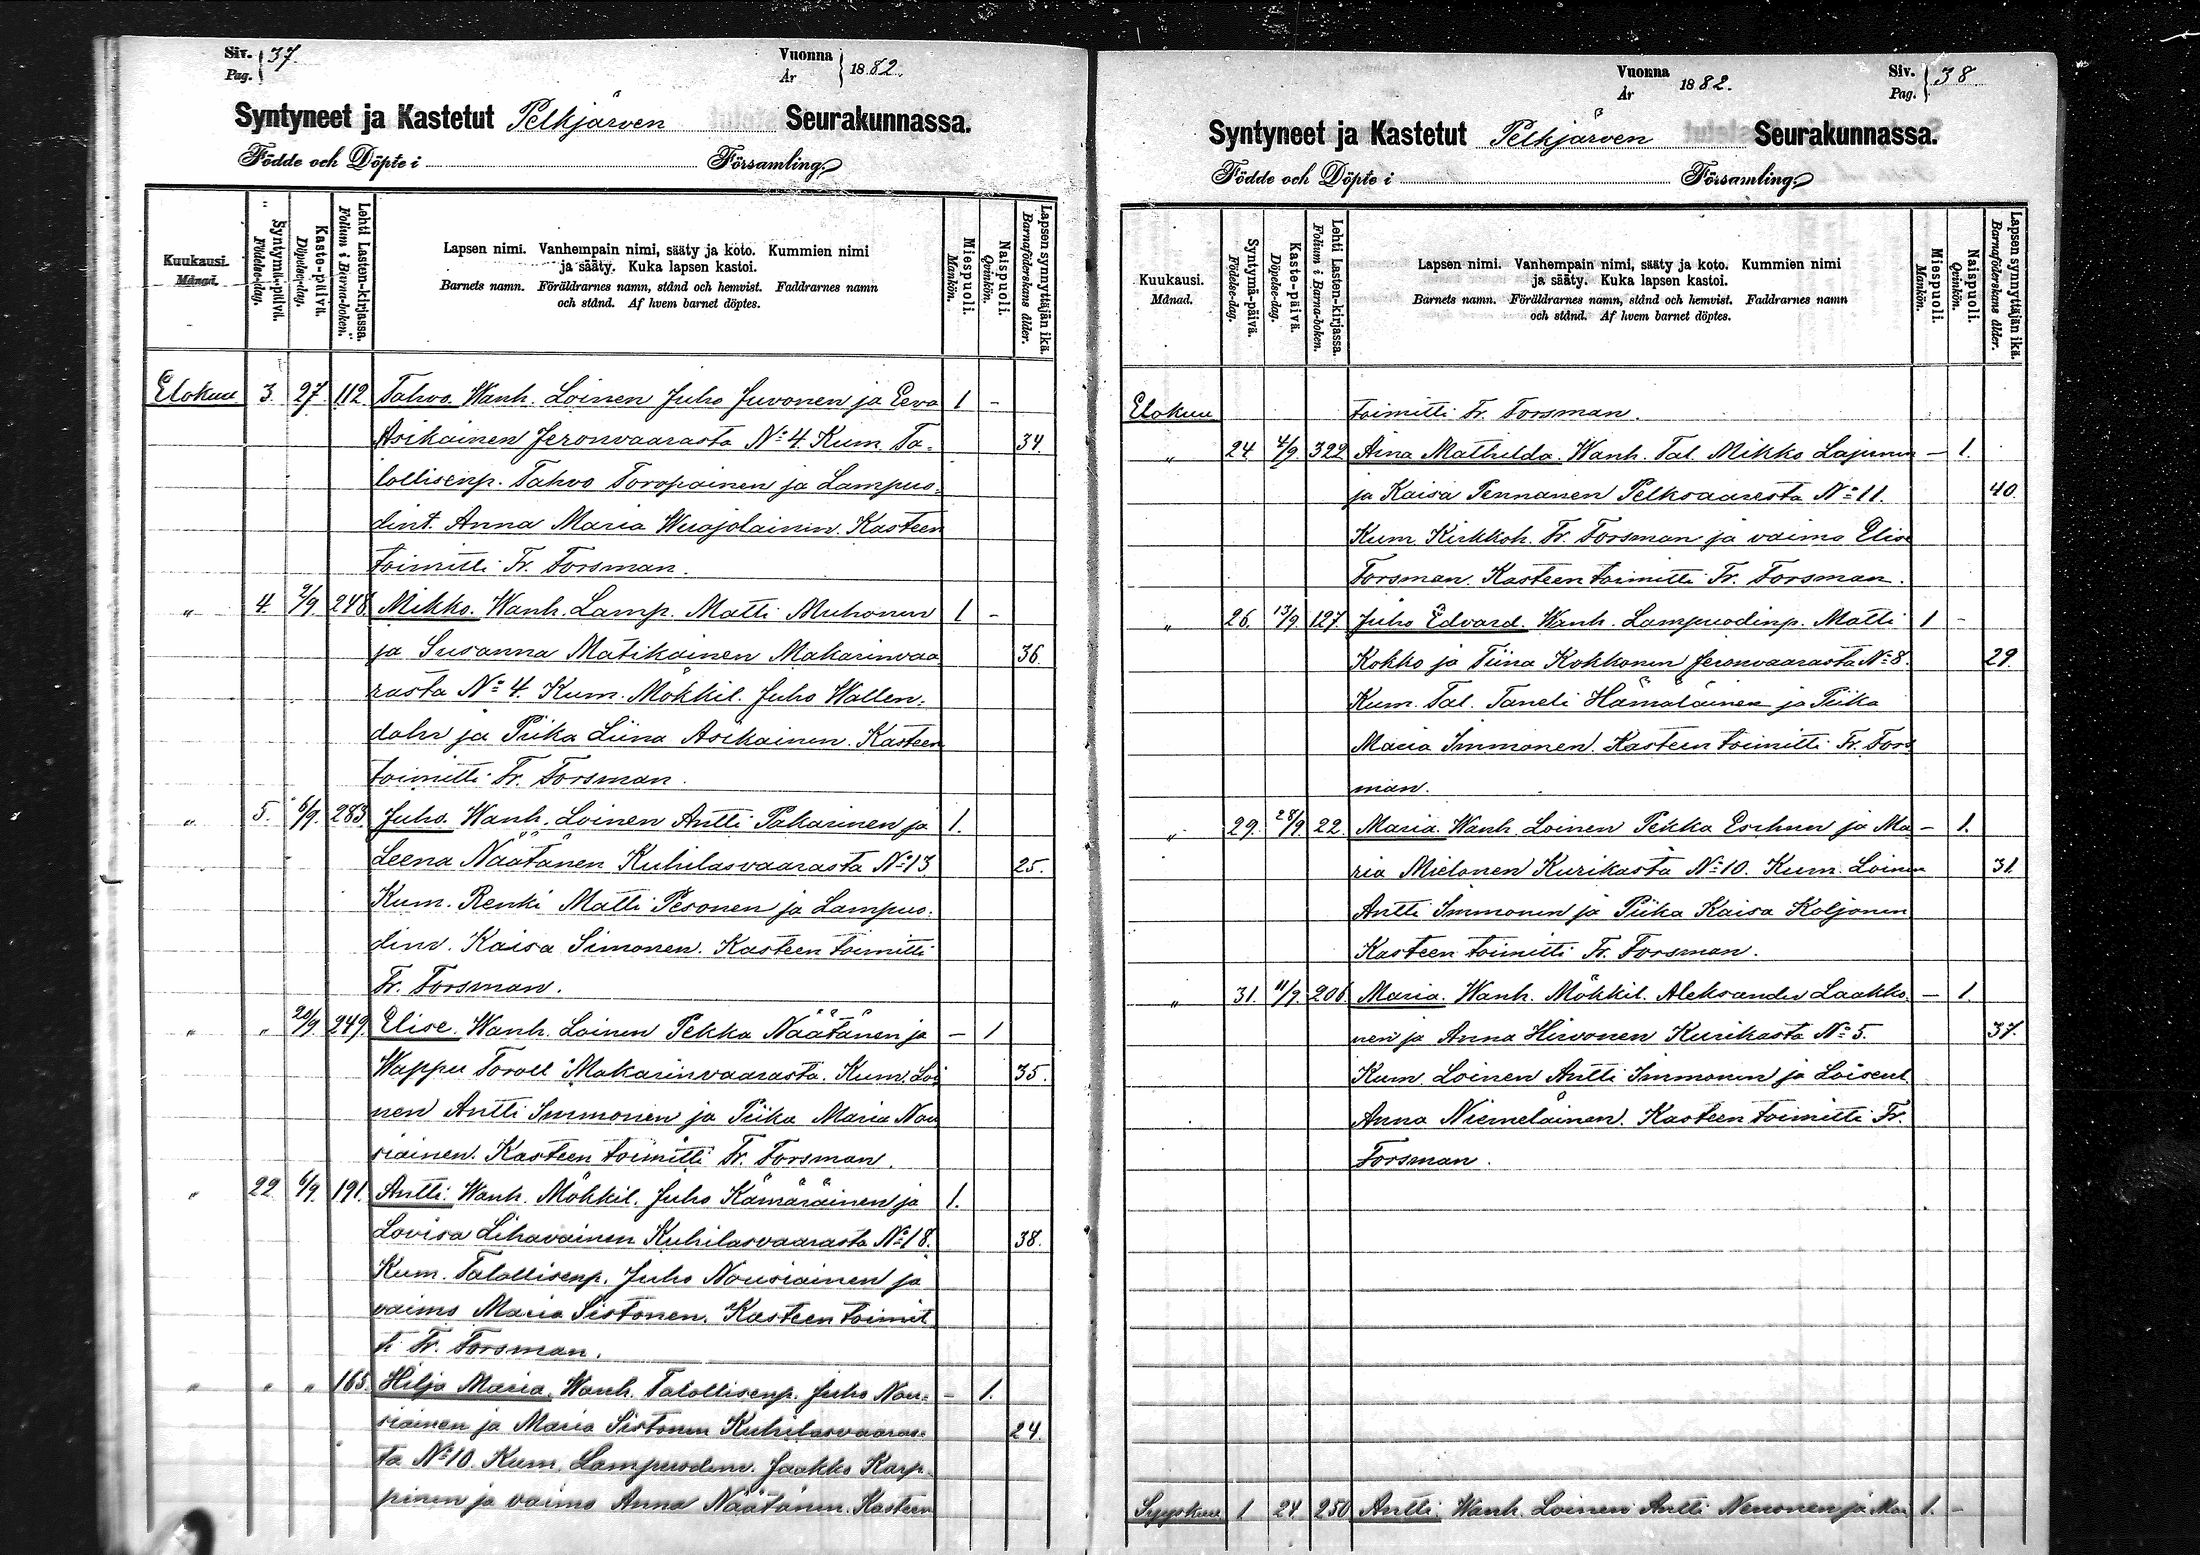 Siv. 37.
Pag.
Vuonna
År 1882.
Syntyneet ja Kastetut Pelkjärven Seurakunnassa.
Födde och Döpte i Församling.
Kuukausi.
Månad.
Syntymä-päivä.
Födelse-dag.
Kaste-päivä.
Döpelse-dag.
Lehti Lasten-kirjassa.
Folium i Barna-boken.
Lapsen nimi. Vanhempain nimi, sääty ja koto. Kummien nimi
ja sääty. Kuka lapsen kastoi.
Barnets namn. Föräldrarnes namn, stånd och hemvist. Faddrarnes namn
och stånd. Af hvem barnet döptes.
Miespuoli.
Mankön.
Naispuoli.
Qvinkön.
Lapsen synnyttäjän ikä.
Barnaföderskans ålder.
Elokuu 3. 27. 112. Tahvo. Wanh. Loinen Juho Juvonen ja Eeva 1 -
Asikainen Jeronvaarasta No 4. Kum. Ta- 34.
lollisenp. Tahvo Toropainen ja Lampuo-
dint. Anna Maria Kasteen
toimitti Fr. Forsman.
" 4. 2/9. 248. Mikko. Wanh. Lamp. Matti Muhonen 1 -
ja Susanna Matikainen Makarinvaa 36.
rasta No 4. Kum. Mökkil. Juho Wallen-
dahr ja Piika Liina Asikainen. Kasteen
toimitti Fr. Forsman.
" 5. 6/9. 283. Juho. Wanh. Loinen Antti Pakarinen ja 1.
Leena Näätänen Kuhilasvaarasta No 13 25.
Kum. Renki Matti Pesonen ja Lampuo-
dinv. Kaisa Simonen. Kasteen toimitti
Fr. Forsman.
" " 20/9 249. Elise. Wanh. Loinen Pekka Näätänen ja - 1
Wappu Toroll Makarinvaarasta. Kum. Loi 35.
nen Antti Immonen ja Piika Maria Nou
siainen. Kasteen toimitti Fr. Forsman.
" 22 6/9. 191. Antti. Wanh. Mökkil. Juho Kämäräinen ja 1.
Lovisa Lihavainen Kuhilasvaarasta No 18. 38.
Kum. Talollisenp. Juho Nousiainen ja
vaimo Maria Sistonen. Kasteen toimit
ti Fr. Forsman.
" " " 165. Hilja Maria. Wanh. Talollisenp. Juho Nou- - 1.
siainen ja Maria Sistonen Kuhilasvaaras- 24.
ta No 10. Kum. Lampuodinv. Jaakko Karp-
pinen ja vaimo Anna Näätänen. Kasteen
Vuonna
År 1882.
Siv. 38.
Pag.
Syntyneet ja Kastetut Pelkjärven Seurakunnassa.
Födde och Döpte i Församling.
Kuukausi.
Månad.
Syntymä-päivä.
Födelse-dag.
Kaste-päivä.
Döpelse-dag.
Lehti Lasten-kirjassa.
Folium i Barna-boken.
Lapsen nimi. Vanhempain nimi, sääty ja koto. Kummien nimi
ja sääty. Kuka lapsen kastoi.
Barnets namn. Föräldrarnes namn, stånd och hemvist. Faddrarnes namn
och stånd. Af hvem barnet döptes.
Miespuoli.
Mankön.
Naispuoli.
Qvinkön.
Lapsen synnyttäjän ikä.
Barnaföderskans ålder.
Elokuu toimitti Fr. Forsman.
" 24 4/9. 322 Aina Mathilda. Wanh. Tal. Mikko Lajunen - 1.
ja Kaisa Pennanen Pelksaaresta No 11. 40.
Kum. Kirkkoh. Fr. Forsman ja vaimo Elise
Forsman. Kasteen toimitti Fr. Forsman.
" 26. 13/9 127. Juho Edvard. Wanh. Lampuodinp. Matti 1 -
Kokko ja Tiina Kokkonen Jeronvaarasta No 8. 29.
Kum. Tal. Taneli Hämäläinen ja Piika
Maria Immonen. Kasteen toimitti Fr. Fors
man.
" 29. 28/9 22. Maria. Wanh. Loinen Pekka Eronen ja Ma - 1.
ria Mielonen Kurikasta No 10. Kum. Loinen 31.
Antti Immonen ja Piika Kaisa Koljonen
Kasteen toimitti Fr. Forsman.
" 31. 11/9. 206 Maria. Wanh. Mökkil. Aleksander Laakko - 1
nen ja Anna Hirvonen Kurikasta No 5. 37.
Kum. Loinen Antti Immonen ja Loisent.
Anna Niemeläinen. Kasteen toimitti Fr.
Forsman.
Syyskuu 1 24 250 Antti. Wanh. Loinen Antti Nenonen ja Mar 1. -